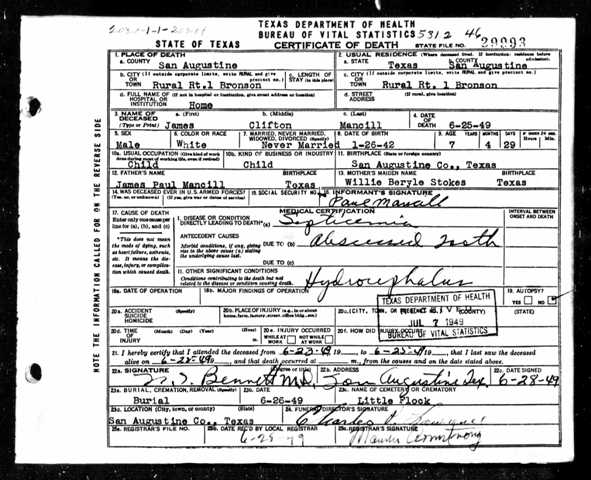 TEXAS DEPARTMENT OF HEALTH
BUREAU OF VITAL STATISTICS 5312 46
STATE OF TEXAS CERTIFICATE OF DEATH STATE FILE NO. 29993
1. PLACE OF DEATH 2. USUAL RESIDENCE (Where deceased lived. If institution: residence before admission).
a. COUNTY San Augustine a. STATE Texas b. COUNTY San Augustine
b. CITY (If outside corporate limits, write RURAL and give precinct no.) OR TOWN Rural Rt.1 Bronson c. LENGTH OF STAY (in this place) c. CITY (If outside corporate limits, write RURAL and give precinct no.) OR TOWN Rural Rt. 1 Bronson
d. FULL NAME OF (If not in hospital or institution, give street address or location) HOSPITAL OR INSTITUTION Home d. STREET ADDRESS (If rural, give location)
3. NAME OF DECEASED (Type or Print) a. (First) James b. (Middle) Clifton c. (Last) Mancill 4. DATE OF DEATH 6-25-49
5. SEX Male 6. COLOR OR RACE White 7. MARRIED, NEVER MARRIED, WIDOWED, DIVORCED (Specify) Never Married 8. DATE OF BIRTH 1-26-42 9. AGE YEARS 7 MONTHS 4 DAYS 29
10a. USUAL OCCUPATION (Give kind of work done during most of working life, even if retired) Child 10b. KIND OF BUSINESS OR INDUSTRY Child 11. BIRTHPLACE (State or foreign country) San Augustine Co., Texas
12. FATHER'S NAME James Paul Mancill BIRTHPLACE Texas 13. MOTHER'S MAIDEN NAME Willie Beryle Stokes BIRTHPLACE Texas
14. WAS DECEASED EVER IN U.S. ARMED FORCES? (Yes, no, or unknown) (If yes, give war or dates of service) 15. SOCIAL SECURITY NO. 16. INFORMANT'S SIGNATURE Paul Mancill
17. CAUSE OF DEATH Enter only one cause per line for (a), (b), and (c) MEDICAL CERTIFICATION INTERVAL BETWEEN ONSET AND DEATH
I. DISEASE OR CONDITION DIRECTLY LEADING TO DEATH* (a) Septicemia
*This does not mean the mode of dying, such as heart failure, asthenia, etc. It means the disease, injury, or complication which caused death.
ANTECEDENT CAUSES
Morbid conditions, if any, giving rise to the above cause (a) stating the underlying cause last. DUE TO (b) Abscessed Tooth
DUE TO (c)
II. OTHER SIGNIFICANT CONDITIONS
Conditions contributing to the death but not related to the disease or condition causing death. Hydrocephalus
18a. DATE OF OPERATION 18b. MAJOR FINDINGS OF OPERATION 19. AUTOPSY? YES NO
20a. ACCIDENT SUICIDE HOMICIDE (Specify) 20b. PLACE OF INJURY (e.g., in or about home, farm, factory, street, office bldg., etc.) 20c. (CITY, TOWN, OR PRECINCT NO.) (COUNTY) (STATE)
TEXAS DEPARTMENT OF HEALTH
RECEIVED
JUL 7 1949
BUREAU OF VITAL STATISTICS
20d. TIME OF INJURY (Month) (Day) (Year) (Hour) 20e. INJURY OCCURRED WHILE AT WORK NOT WHILE AT WORK 20f. HOW DID INJURY OCCUR?
21. I hereby certify that I attended the deceased from 6-23-49, 19 to 6-25-49, 19, that I last saw the deceased
alive on 6-25-49, 19, and that death occurred at m., from the causes and on the date stated above.
22a. SIGNATURE Bennett M.D. (Degree or title) 22b. ADDRESS San Augustine Tex. 22c. DATE SIGNED 6-28-49
23a. BURIAL, CREMATION, REMOVAL (Specify) Burial 23b. DATE 6-26-49 23c. NAME OF CEMETERY OR CREMATORY Little Flock
23d. LOCATION (City, town, or county) (State) San Augustine Co., Texas 24. FUNERAL DIRECTOR'S SIGNATURE Charles
25a. REGISTRAR'S FILE NO. 25b. DATE REC'D BY LOCAL REGISTRAR 6-28 49 25c. REGISTRAR'S SIGNATURE Armstrong
NOTE THE INFORMATION CALLED FOR ON THE REVERSE SIDE